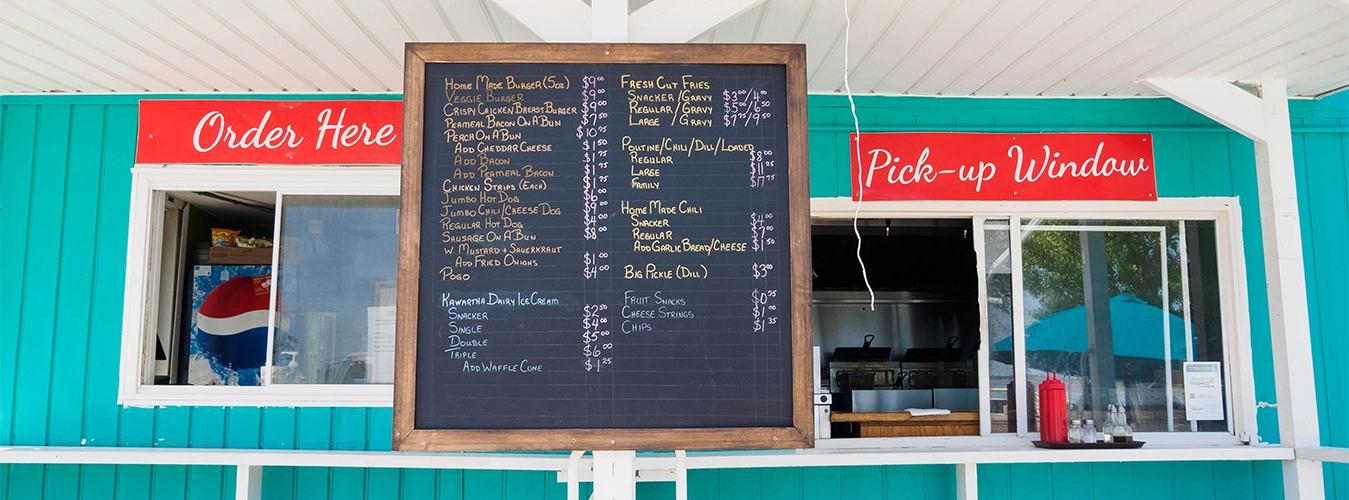 Order Here
Pick-up Window
Home Made Burger (5oz) $9.00
Veggie Burger $9.00
Crispy Chicken Breast Burger $9.00
Peameal Bacon On A Bun $7.50
Perch On A Bun $10.75
Add Cheddar Cheese $1.50
Add Bacon $1.75
Add Peameal Bacon $1.75
Chicken Strips (Each)
Jumbo Hot Dog $6.00
Jumbo Chili/Cheese Dog $9.00
Regular Hot Dog $4.00
Sausage On A Bun $8.00
W. Mustard + Sauerkraut
Add Fried Onions $1.00
Pogo $4.00
Kawartha Dairy Ice Cream
Snacker $2.50
Single $4.00
Double $5.00
Triple $6.00
Add Waffle Cone $1.25
Fresh Cut Fries
Snacker/Gravy $3.00/4.00
Regular/Gravy $5.00/6.50
Large/Gravy $7.75/9.50
Poutine/Chili/Dill/Loaded
Regular $8.00
Large $11.25
Family $17.75
Home Made Chili
Snacker $4.00
Regular $7.00
Add Garlic Bread/Cheese $1.50
Big Pickle (Dill) $3.00
Fruit Snacks $0.75
Cheese Strings $1.00
Chips $1.35